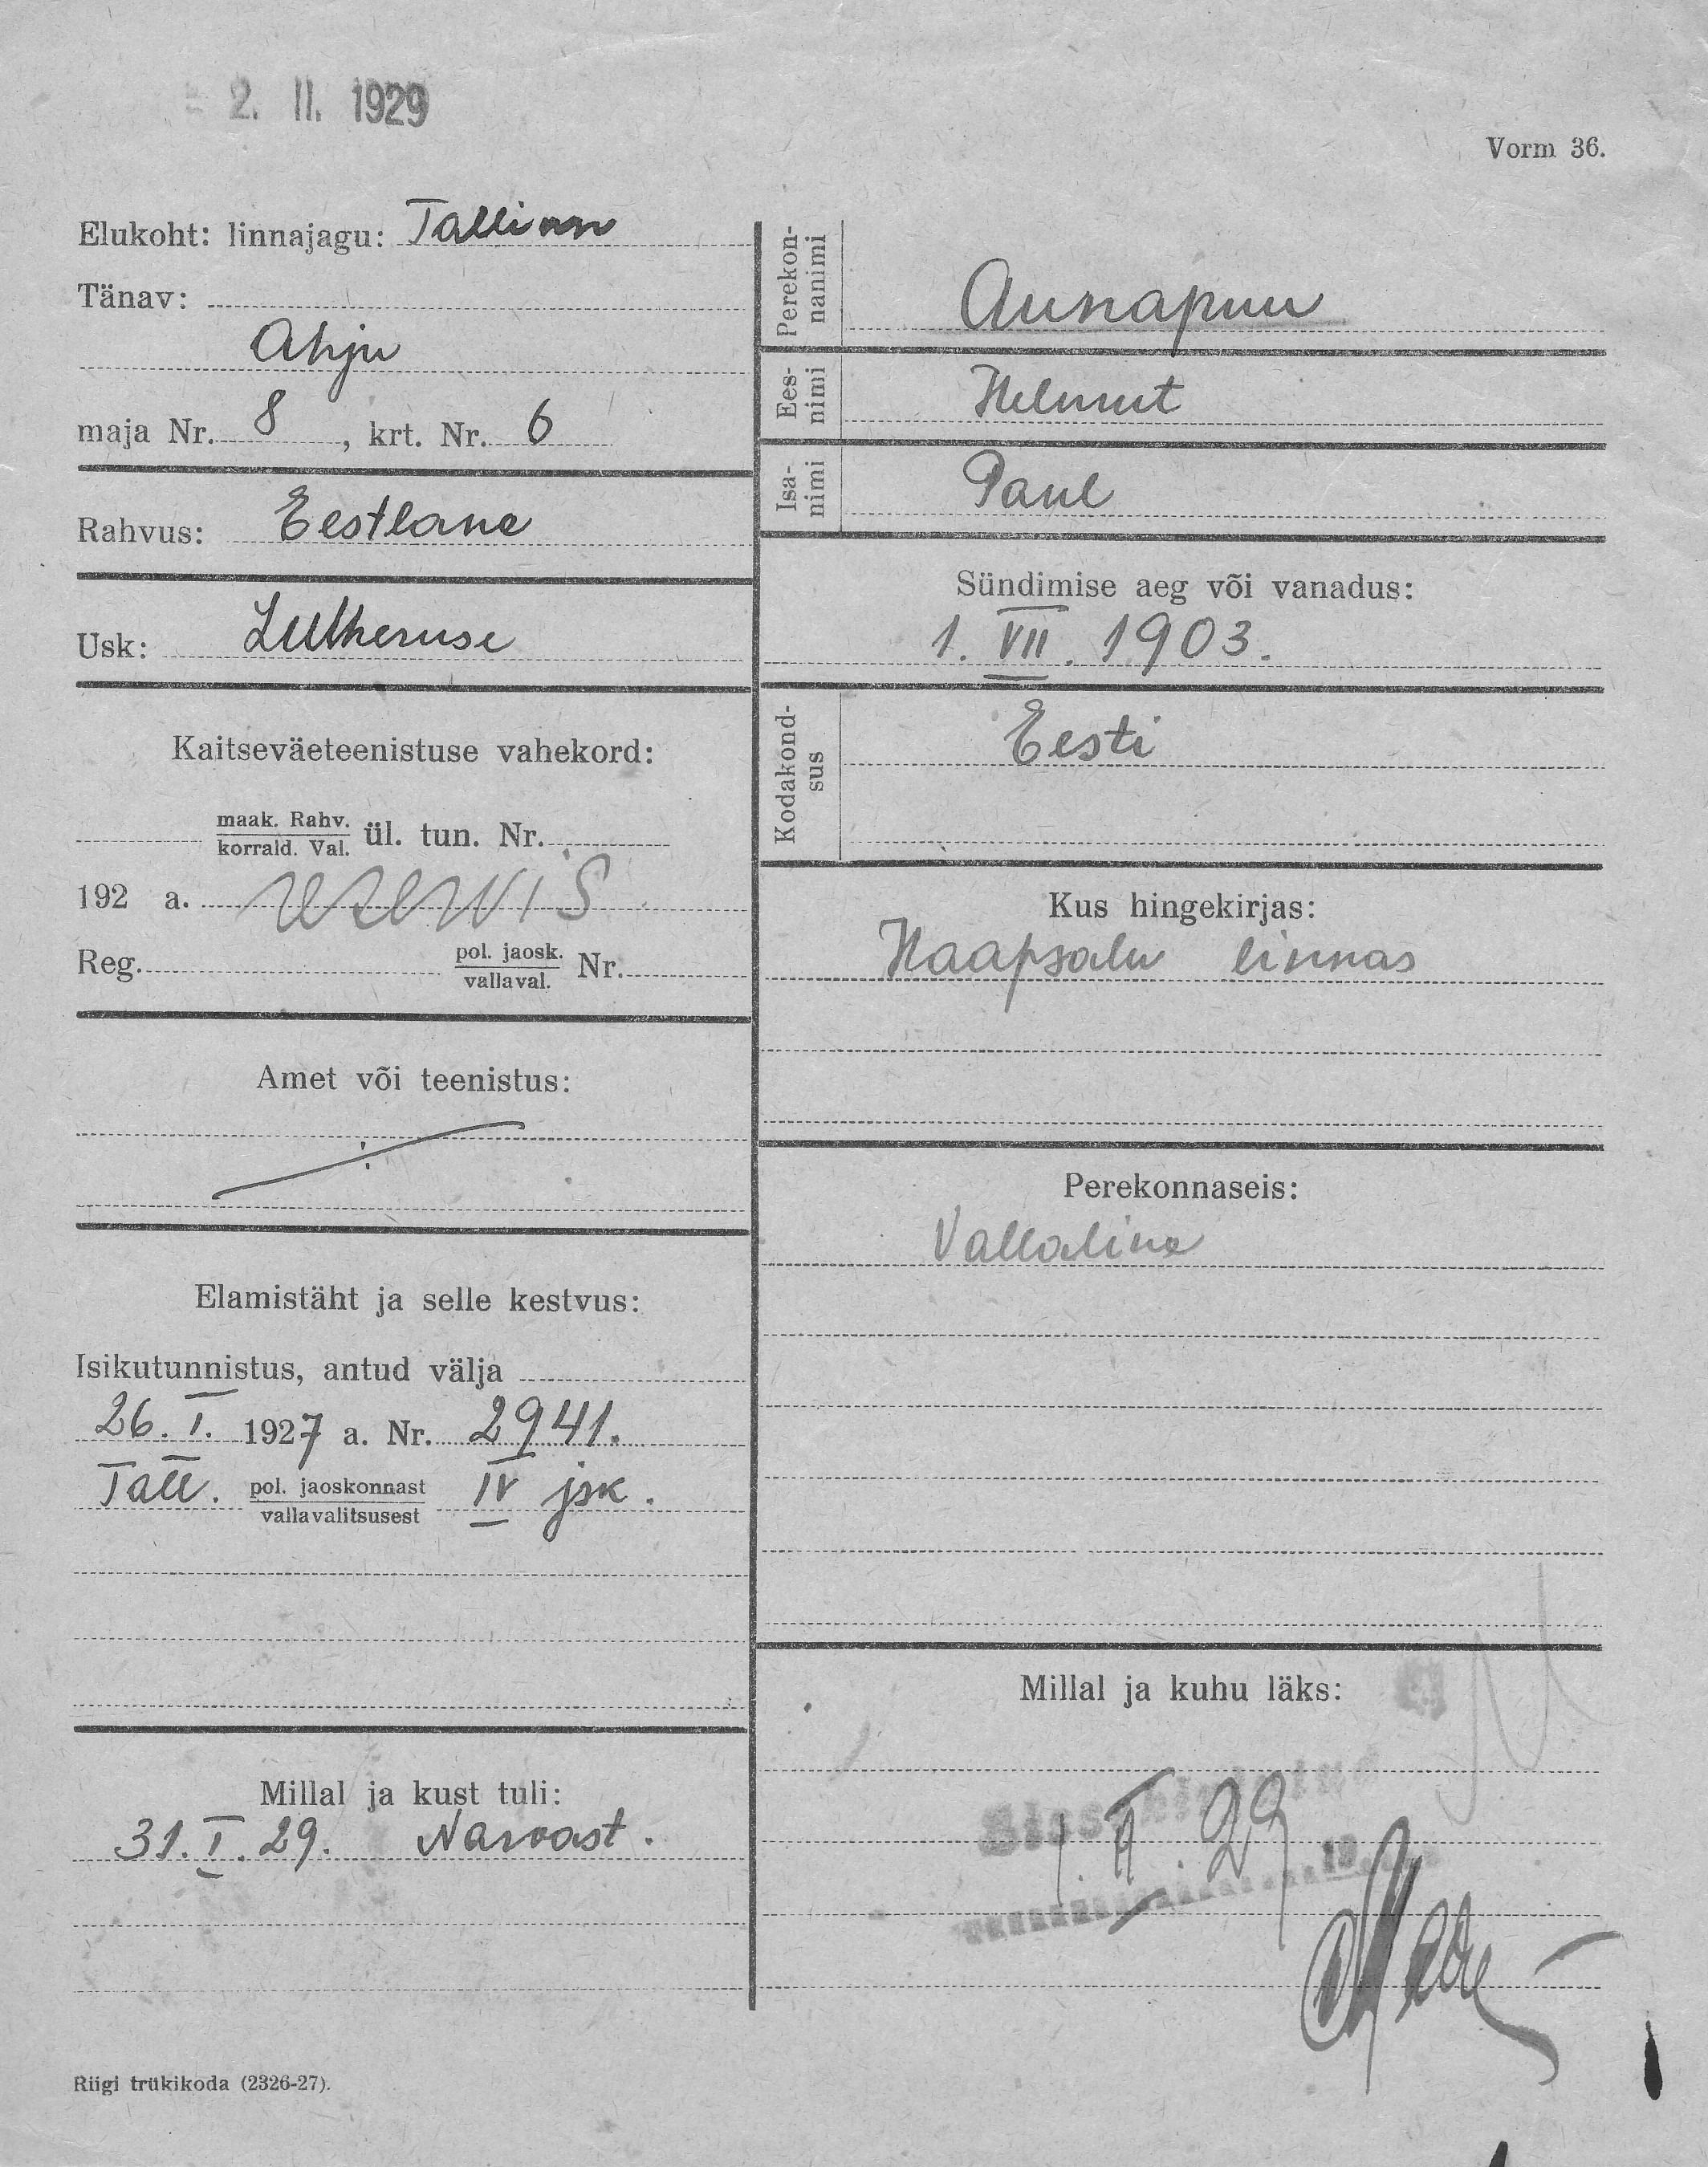 2. II. 1929
Vorm 36.
Elukoht: linnajagu: Tallinn
Tänav:
Ahju
maja Nr. 8, krt. Nr. 6
Rahvus: Eestlane
Usk: Lutheruse
Kaitseväeteenistuse vahekord:
maak. Rahv.
korrald. Val. ül. tun. Nr.
192 a. reservis
Reg. pol. jaosk.
vallaval. Nr.
Amet või teenistus:
Elamistäht ja selle kestvus:
Isikutunnistus, antud välja
26. I. 1927 a. Nr. 2941.
Tall. pol. jaoskonnast IV jsk.
vallavalitsusest
Millal ja kust tuli:
31. I. 29. Narvast.
Riigi trükikoda (2326-27).
Perekon-
nanimi
Aunapuu
Ees-
nimi
Helmut
Isa-
nimi
Paul
Sündimise aeg või vanadus:
1. VII. 1903.
Kodakond-
sus
Eesti
Kus hingekirjas:
Haapsalu linnas
Perekonnaseis:
Vallaline
Millal ja kuhu läks:
1. II. 29
19